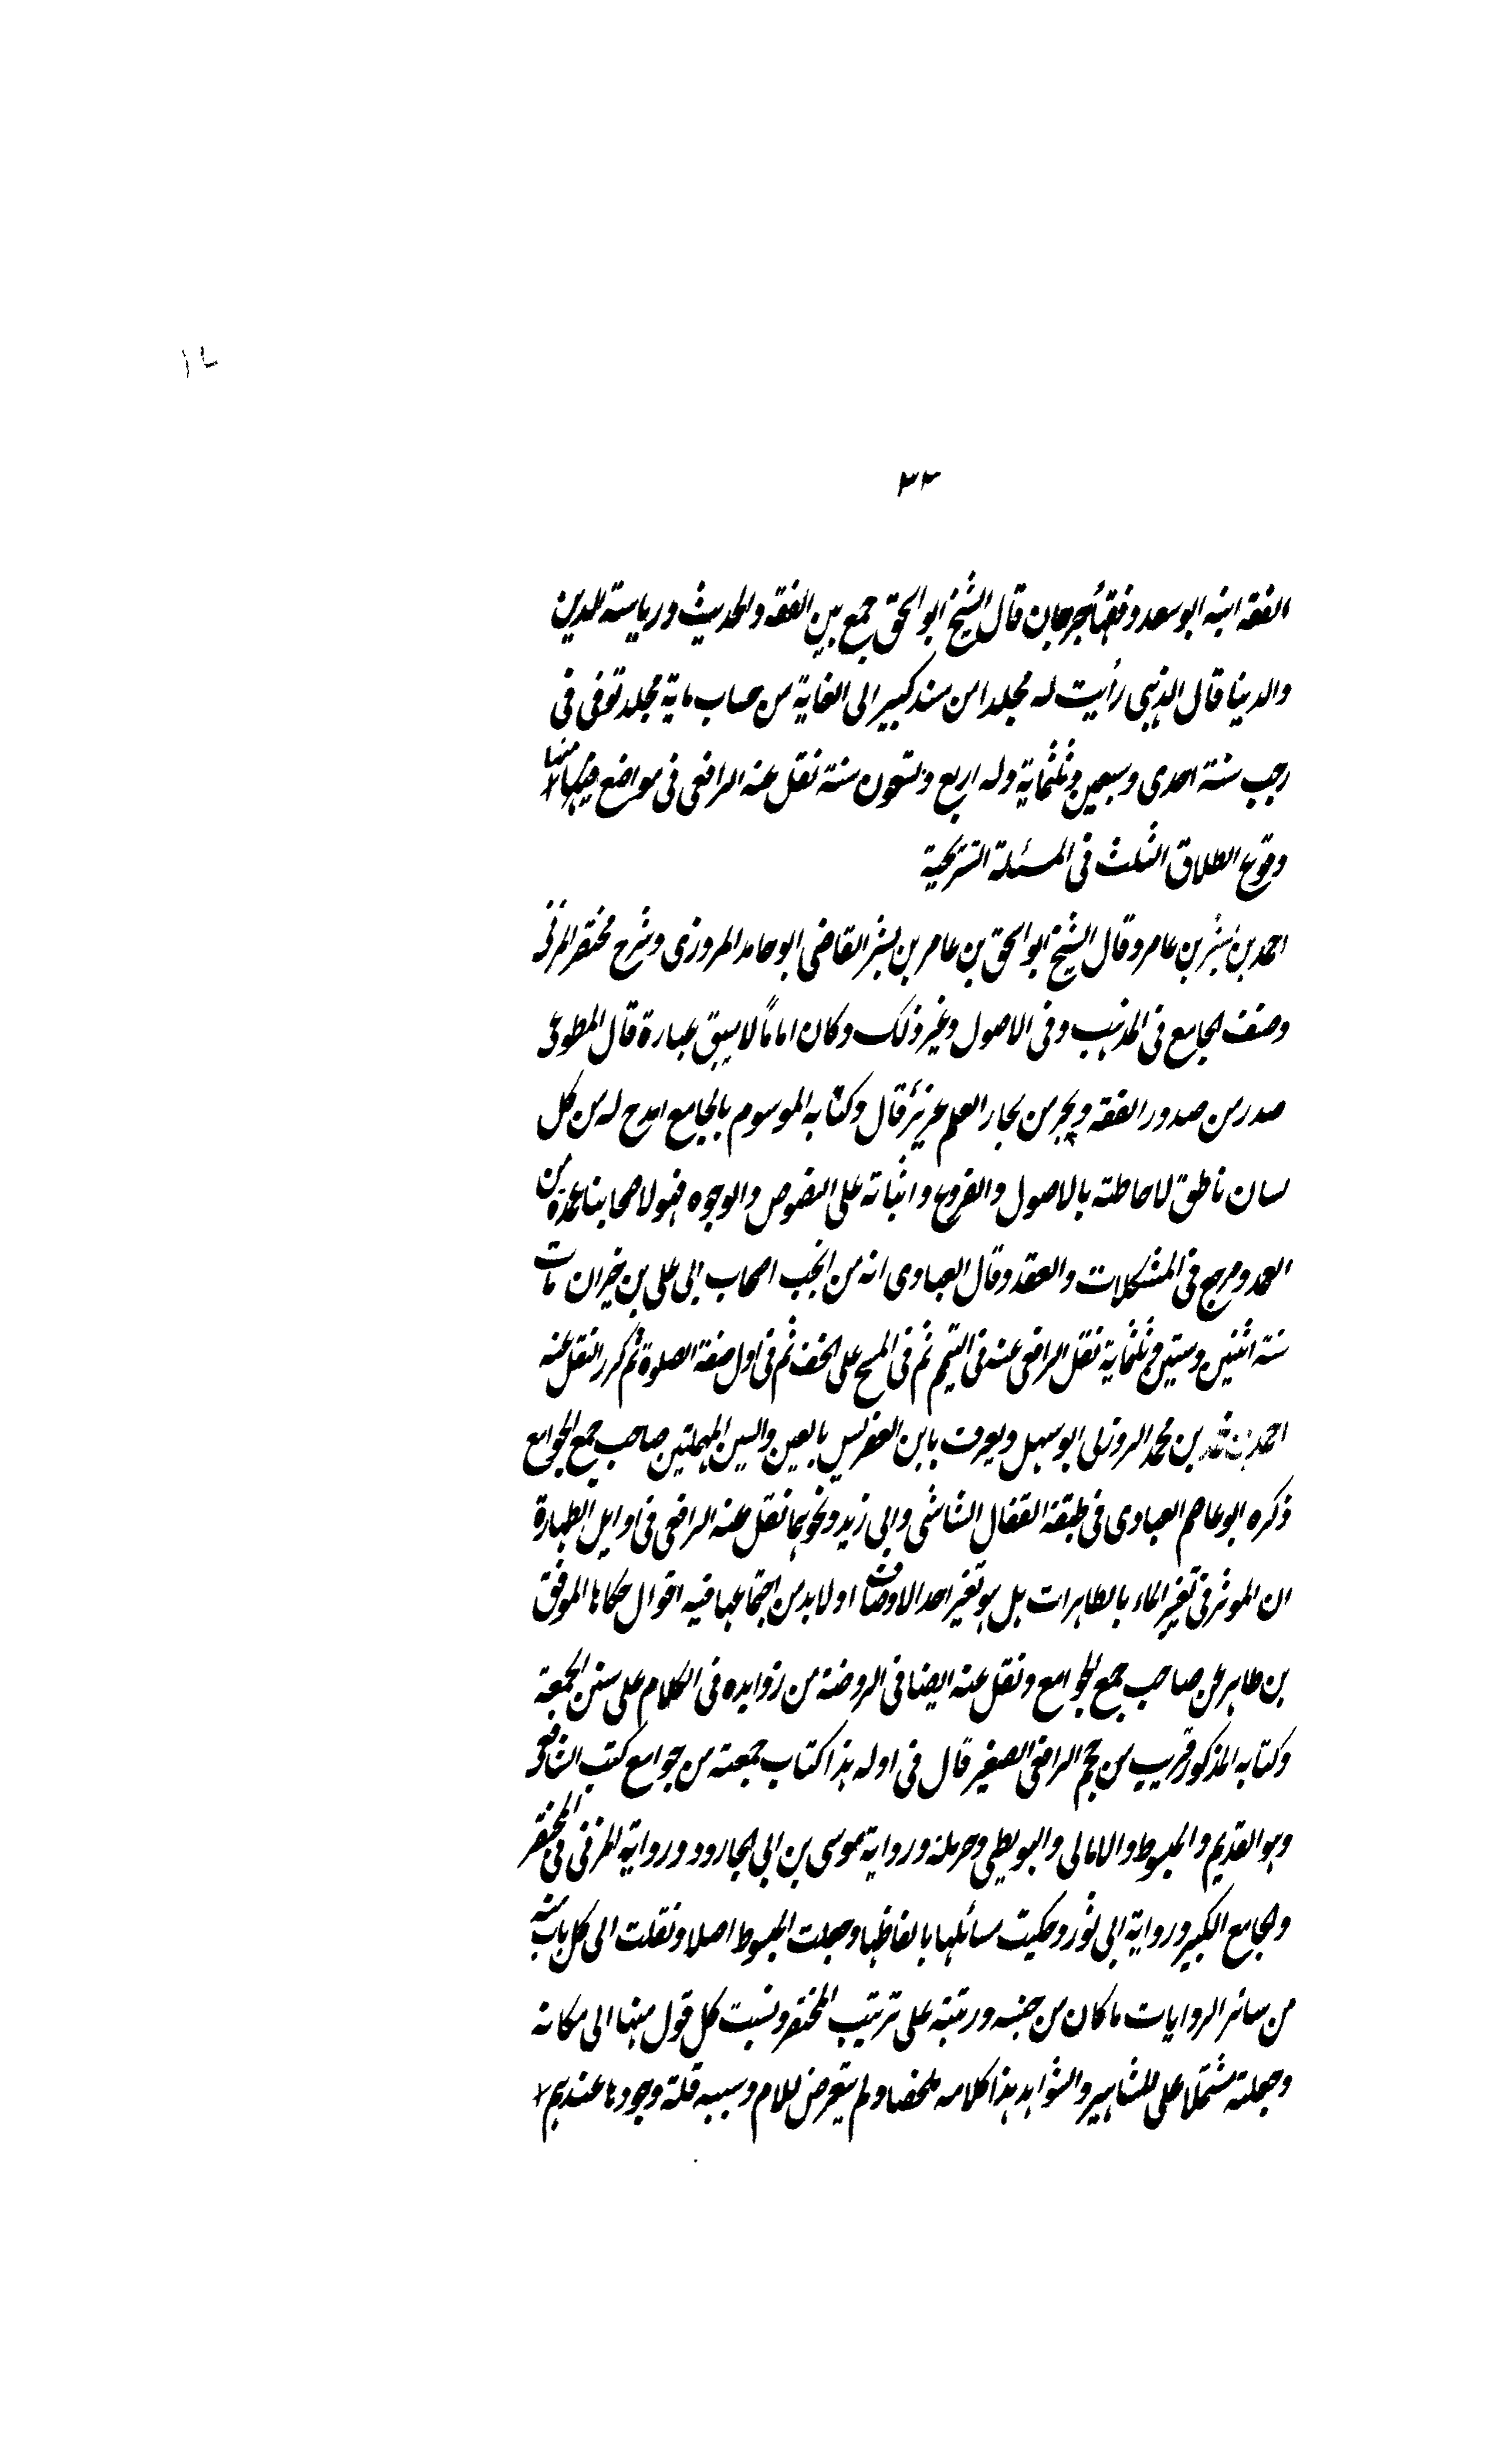 ١٢
٣٣
الفقه ابنه ابو سعد وفقهاء جرجان قال الشيخ ابو اسحق جمع بين الفقه والحديث ورياسة الدين
والدينا قال الذهبى رأيت له مجلدا من مسند كبير الى الغاية من حساب ماية مجلد توفى فى
رجب سنة احدى وسبعين وثلثماية وله اربع وتسعون سنة نقل عنه الرافعى فى مواضع منها
وقوع الطلاق الثلث فى المسئلة السريجية
احمد بن بشر بن عامر وقال الشيخ ابو اسحق بن عامر بن بشر القاضى ابو حامد المروزى وشرح مختصر المزنى
وصنف الجامع فى المذهب وفى الاصول وغير ذلك وكان اماماً لا يسبق غباره قال المطوعى
صدر من صدور الفقه وبحر من بحار العلم غزير قال وكتابه الموسوم بالجامع امدح له من كل
لسان ناطق لاحاطته بالاصول والفروع واثباته على النصوص والوجوه فهو لاصحابنا عمدة من
العمد ومرجع فى المشكلات والعقد وقال العبادى انه من انجب اصحاب ابى على بن خيران مات
سنة اثنين وستين وثلثماية نقل الرافعى عنه فى التيمم ثم فى المسح على الخف ثم فى اول صفة الصلوة ثم كرر النقل عنه
احمد بن محمد بن محمد الزوزنى ابو سهل ويعرف بابن العفريس بالعين والسين المهملتين صاحب جمع الجوامع
ذكره ابو عاصم العبادى فى طبقة القفال الشاشى وابى زيد ونحوهما نقل عنه الرافعى فى اوايل الطهارة
ان الموثر فى تغير الماء بالطاهرات بل هو تغير احد الاوصاف او لابد من اجتماعها فيه اقوال حكاها الموفق
بن طاهر عن صاحب جمع الجوامع ونقل عنه ايضا فى الروضة من زوايده فى الكلام على سنن الجمعة
وكتابه المذكور قريب من حجم الرافعى الصغير قال فى اوله هذا كتاب جمعته من جوامع كتب الشافعى
وهو القديم والمبسوط والامالى والبويطى وحرملة ورواية موسى بن ابى الجارود ورواية المزنى فى المختصر
والجامع الكبير ورواية ابى ثور وحكيت مسائلها بالفاظها وجعلت المبسوط اصلا ونقلت الى كل باب منه
من سائر الروايات ما كان من جنسه ورتبته على ترتيب المختصر ونسبت كل قول منها الى مكانه
وجعلته مشتملا على المشاهير والشواهد هذا كلامه ملخصا ولم يتعرض للام وسببه قلة وجودها عندهم